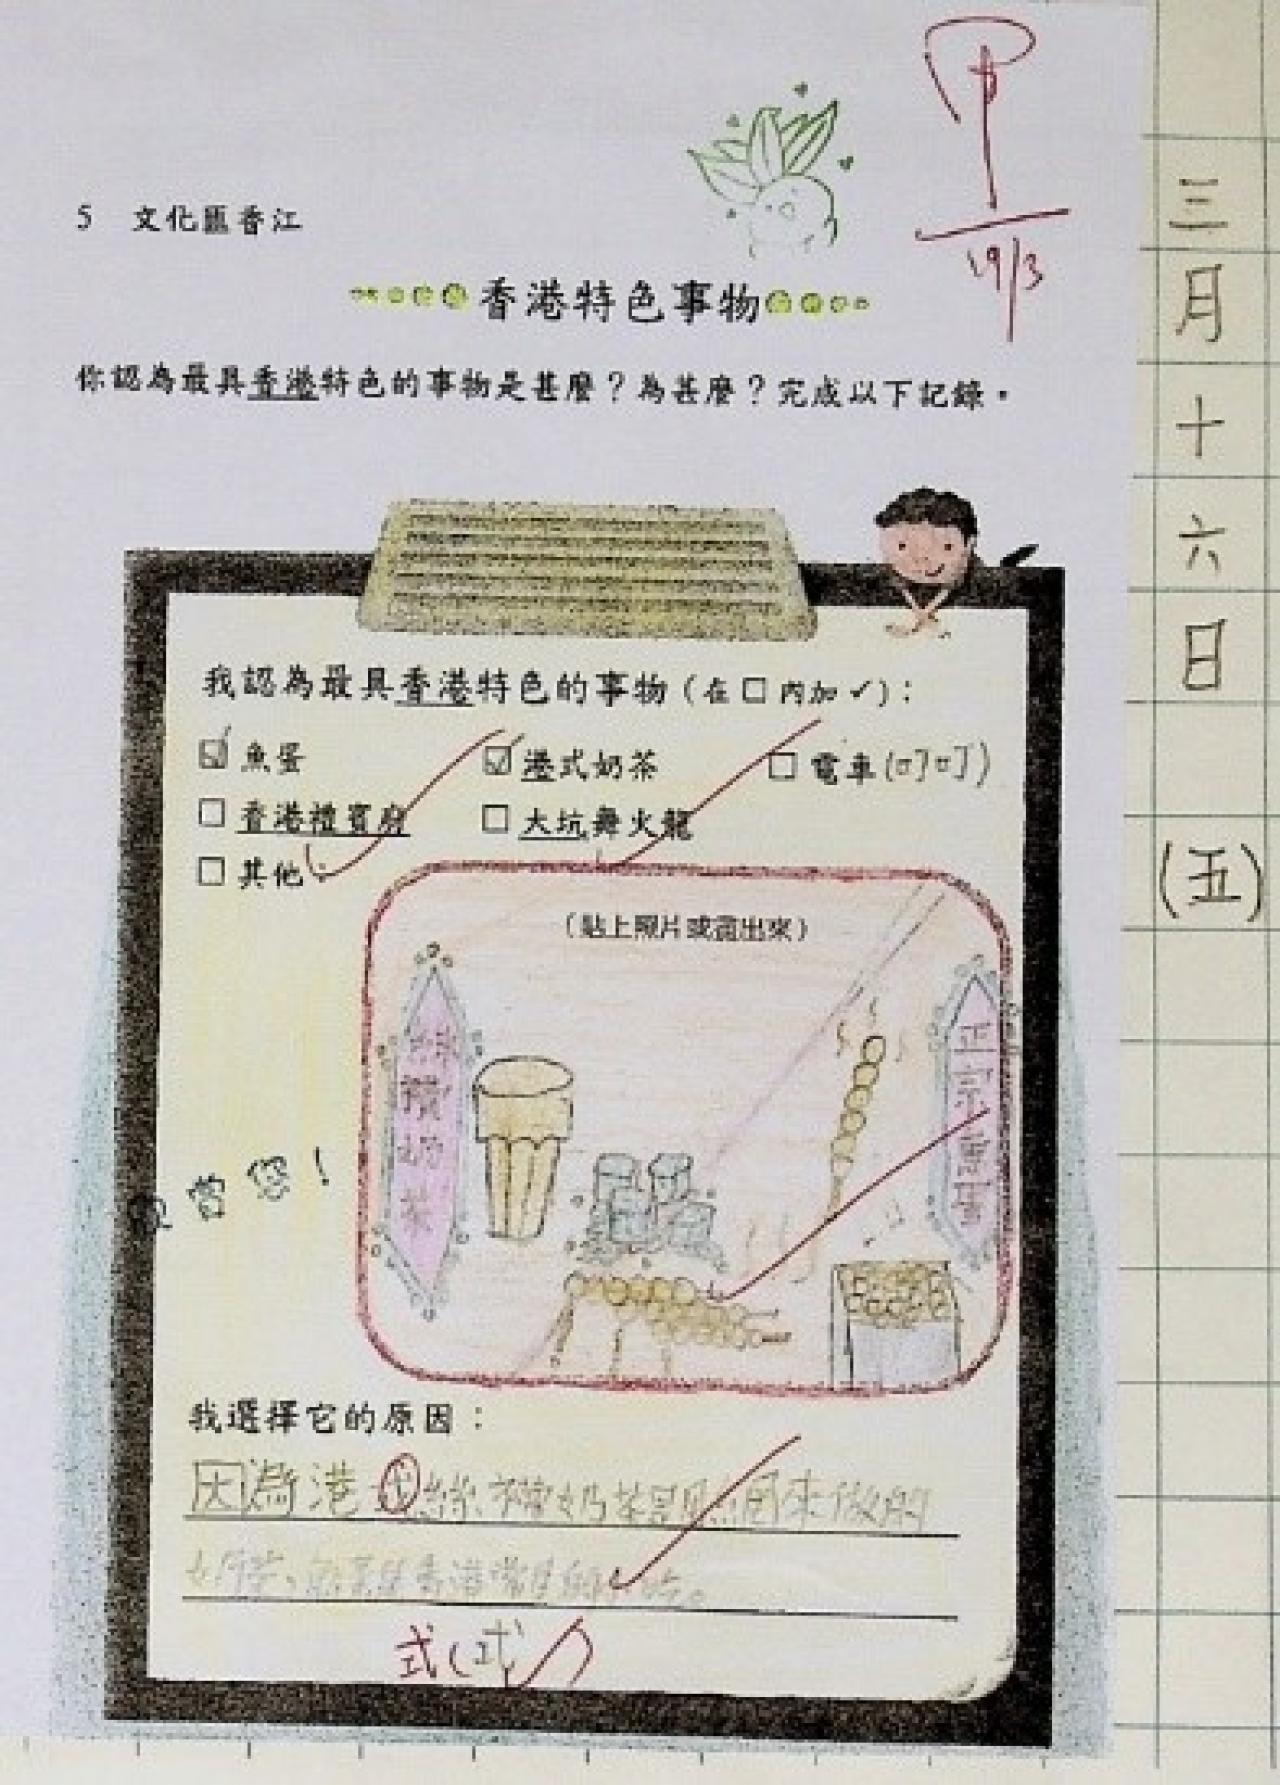 甲
19/3
5 文化匯香江
香港特色事物
你認為最具香港特色的事物是甚麼？為甚麼？完成以下記錄。
我認為最具香港特色的事物（在□內加✓）：
☑ 魚蛋 ☑ 港式奶茶 □ 電車(叮叮)
□ 香港禮賓府 □ 大坑舞火龍
□ 其他：
（貼上照片或畫出來）
絲襪奶茶
正宗魚蛋
我選擇它的原因：
因為港式絲襪奶茶是用來做的
奶茶、香港常見的小吃。
式(式)
三月十六日(五)